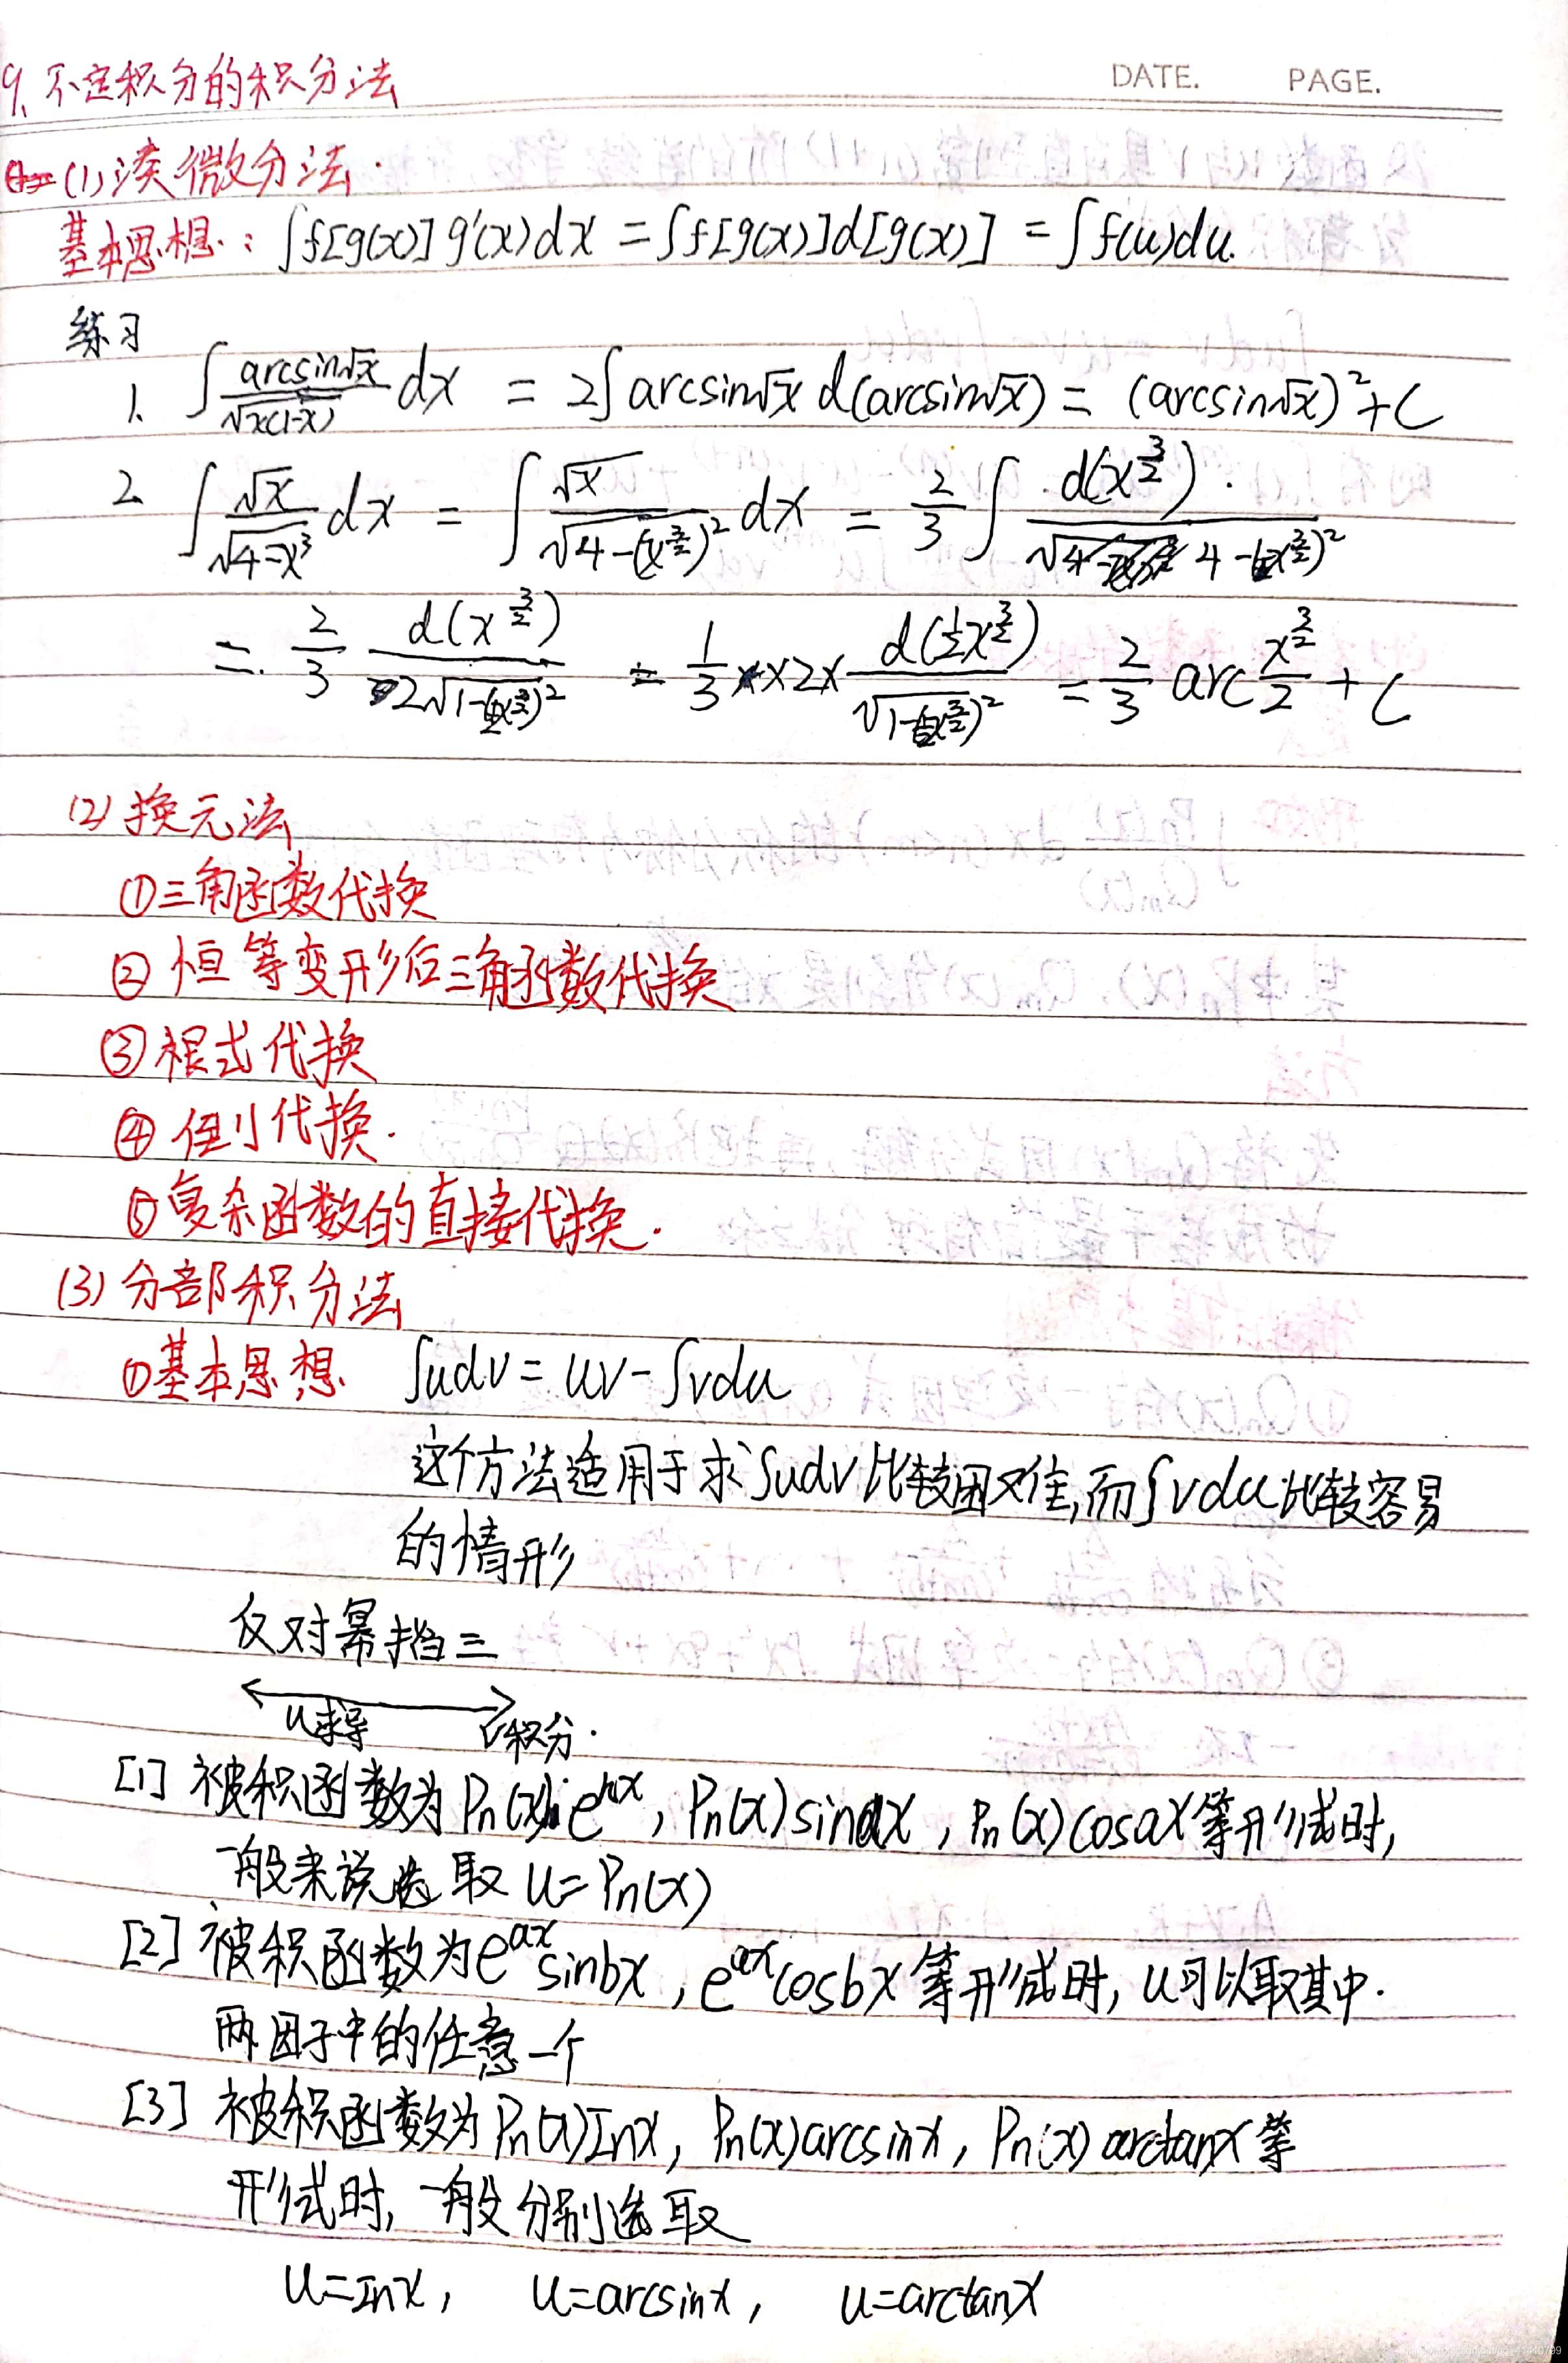 DATE. PAGE.
9. 不定积分的积分法
(1) 凑微分法.
基本思想: ∫f[g(x)]g'(x)dx = ∫f[g(x)]d[g(x)] = ∫f(u)du.
练习
1. ∫ arcsin√x / √x(1-x) dx = 2∫arcsin√x d(arcsin√x) = (arcsin√x)²+C
2. ∫ √x / √4-x³ dx = ∫ √x / √4-(x^{3/2})² dx = 2/3 ∫ d(x^{3/2}) / √4-(x^{3/2})²
= 2/3 d(x^{3/2}) / 2√1-(½x^{3/2})² = 1/3 × 2 × d(½x^{3/2}) / √1-(½x^{3/2})² = 2/3 arc x^{3/2}/2 + C
(2) 换元法
①三角函数代换
② 恒等变形后三角函数代换
③ 根式代换
④ 倒代换.
⑤ 复杂函数的直接代换.
(3) 分部积分法
①基本思想 ∫udv = uv-∫vdu
这个方法适用于求∫udv比较困难,而∫vdu比较容易
的情形
反对幂指三
u求导 v积分.
[1] 被积函数为Pn(x)e^{nx}, Pn(x)sinax, Pn(x)cosax等形式时,
一般来说选取 u=Pn(x)
[2] 被积函数为e^{ax}sinbx, e^{ax}cosbx等形式时, u可以取其中.
两因子中的任意一个
[3] 被积函数为Pn(x)Inx, Pn(x)arcsinx, Pn(x)arctanx等
形式时, 一般分别选取
u=Inx, u=arcsinx, u=arctanx